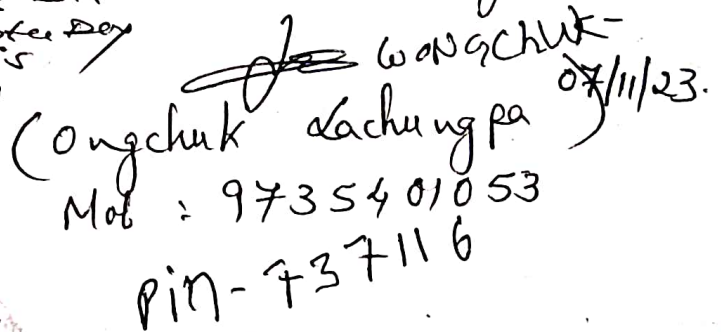 Dey
Wongchuk
07/11/23.
(Ongchuk Lachungpa)
Mob : 9735401053
Pin - 737116